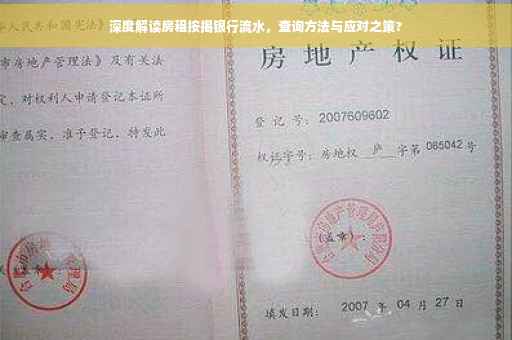 深度解读房租按揭银行流水，查询方法与应对之策？
人民共和国宪法》
市房地产管理法》及有关法
定，对权利人申请登记本证所
审查属实，准予登记，特发此
房地产权证
登记号：2007609602
权证字号：房地权 庐 字第 085042 号
(盖章)：
填发日期： 2007 年 04 月 27 日